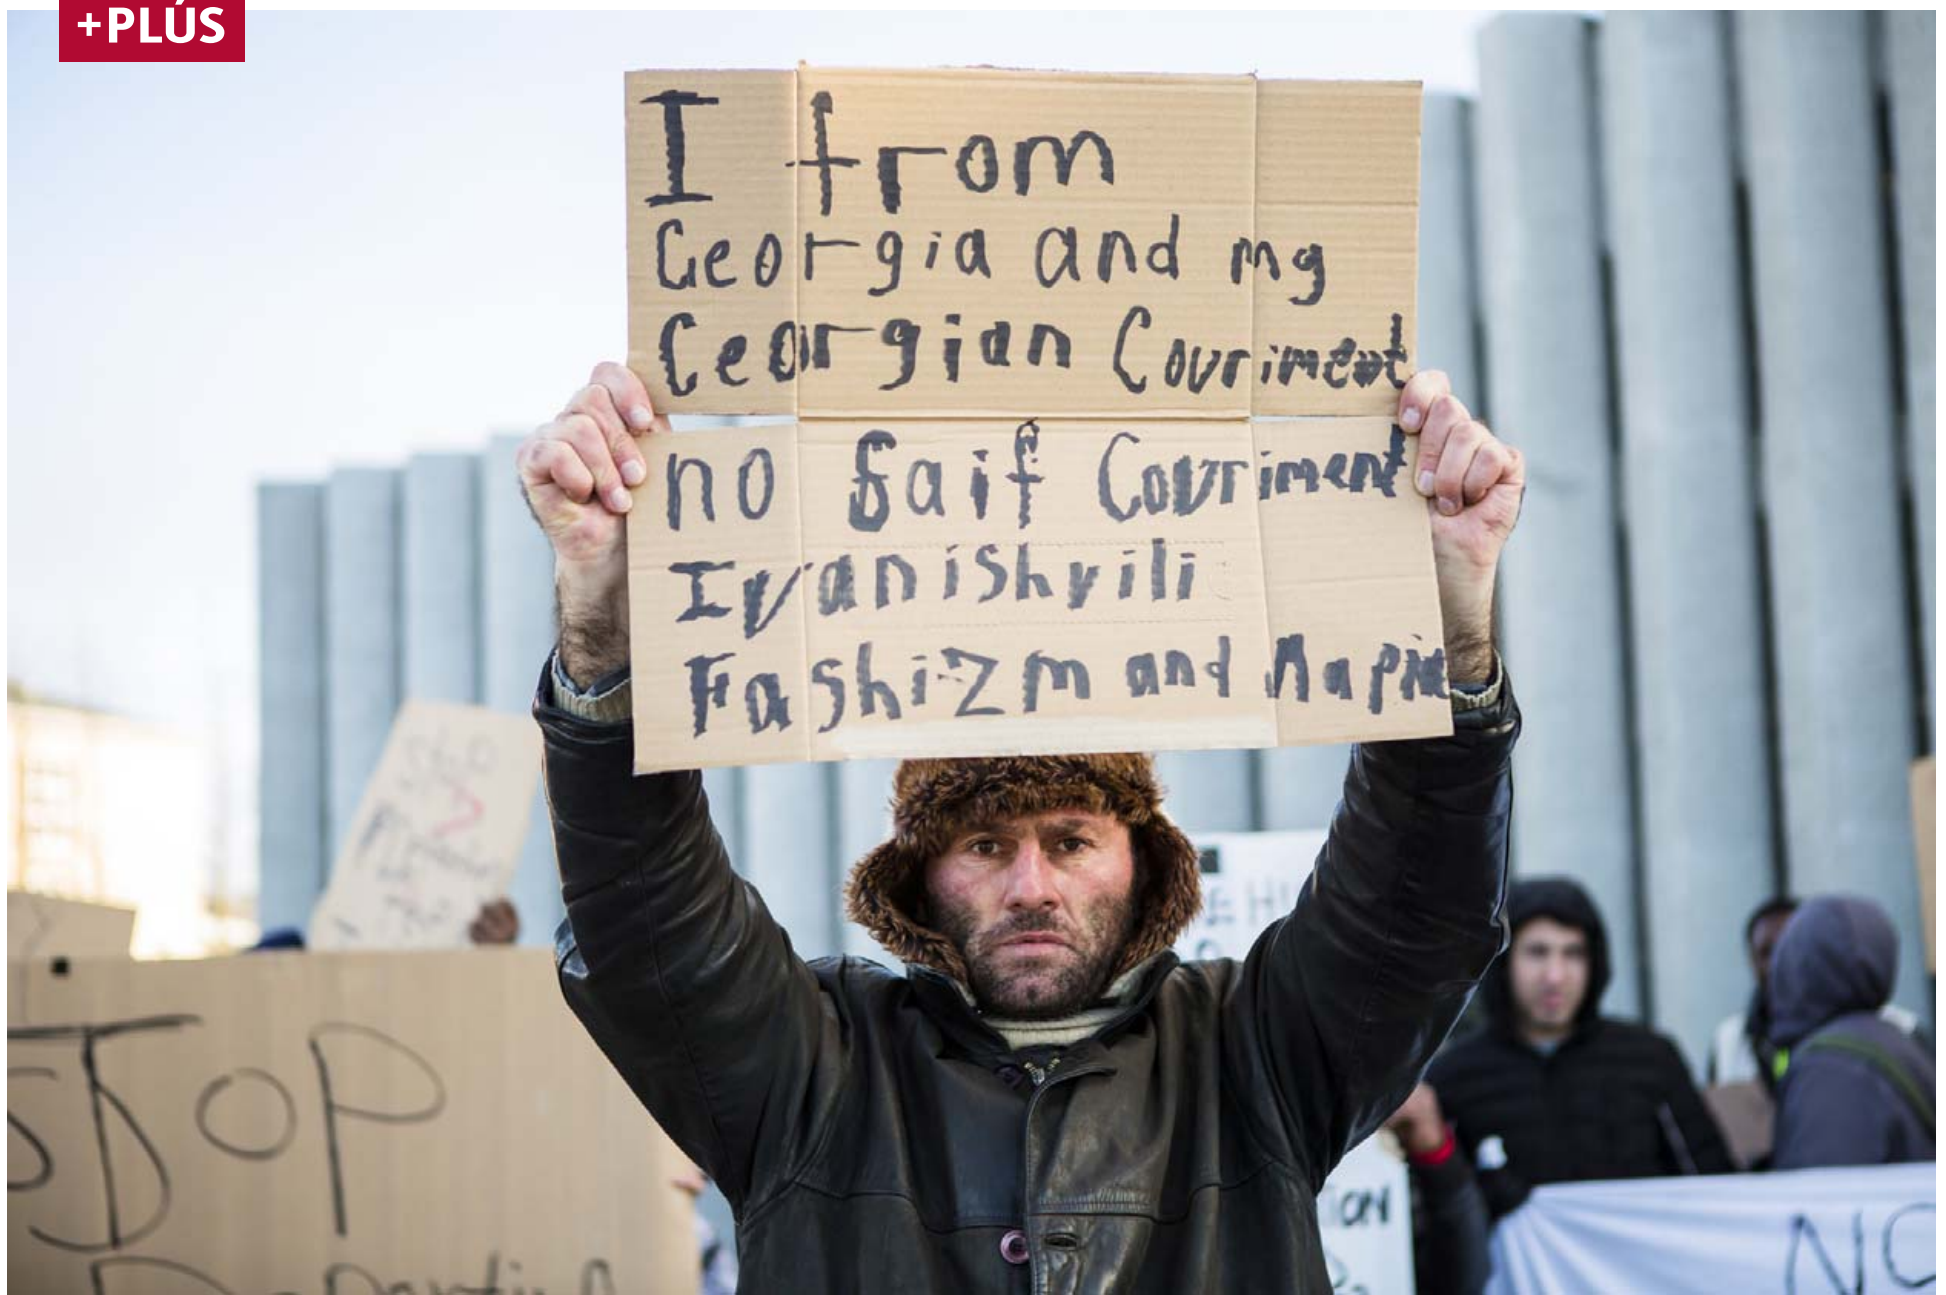 +PLÚS
I from
Georgia and my
Georgian Couriment
no Saif Couriment
Ivanishvili
Fashizm and
STOP
ION
NO